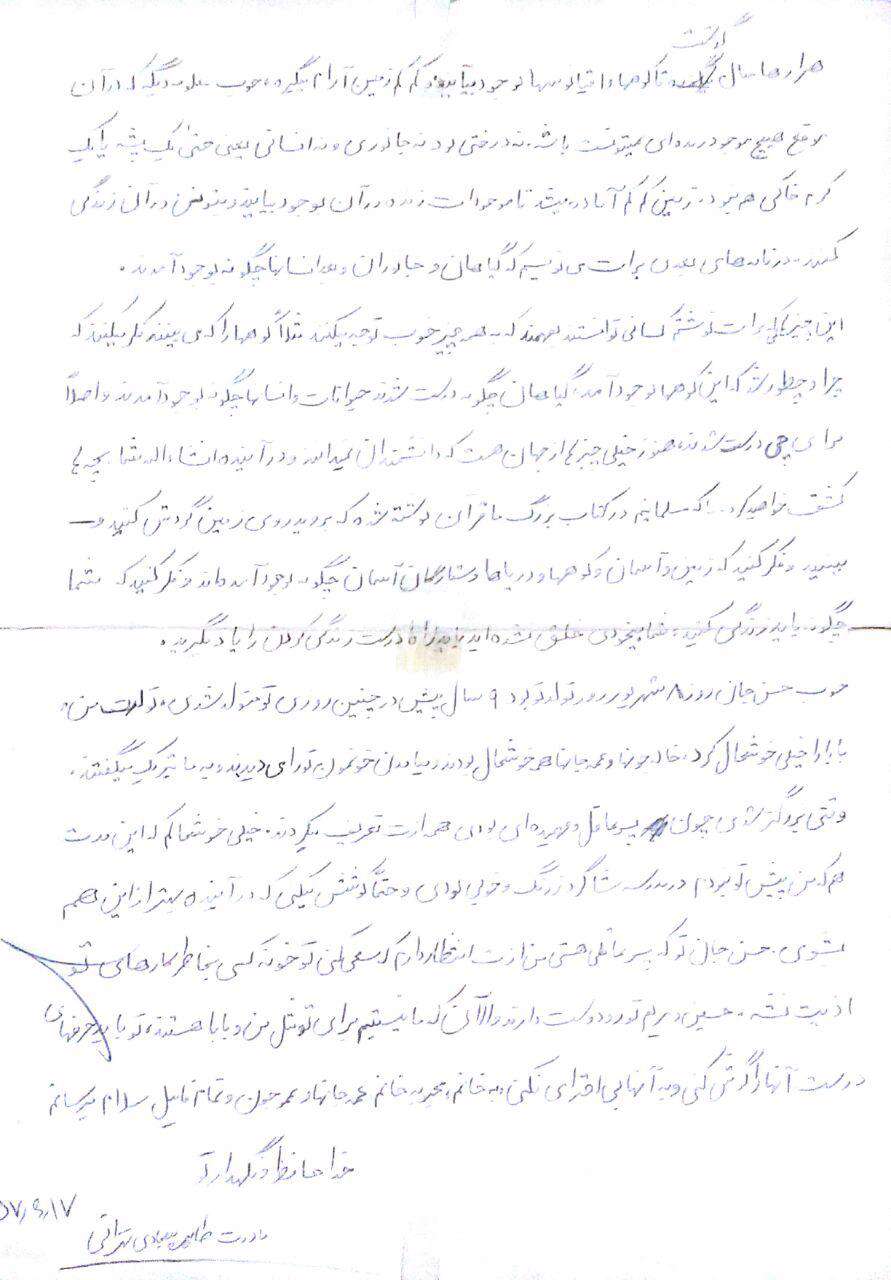 گذشت
هزارها سال تا کوهها و اقیانوسها بوجود بیاید و کم کم زمین آرام بگیره، خوب معلومه دیگه که در آن
موقع هیچ موجود زنده‌ای نمیتونست باشه. نه درختی بود نه جانوری و نه انسانی یعنی حتی یک پشه یا یک
کرم خاکی هم نبود. زمین کم کم آماده میشد تا موجودات زنده در آن بوجود بیایند و بتونن در آن زندگی
کنند. در نامه‌های بعدی برات می نویسم که گیاهان و جانوران و بعد انسانها چگونه بوجود آمدند.
این چیزهائی که برات نوشتم کسانی توانستند بفهمند که به همه چیز خوب توجه میکنند مثلاً کوهها را که می بینند فکر میکنند که
چرا و چطور شد که این کوهها بوجود آمد، گیاهان چگونه درست شدند حیوانات و انسانها چگونه بوجود آمدند و اصلاً
برای چی درست شدند، هنوز خیلی چیزها از جهان هست که دانشمندان نمیدانند و در آینده انشاءاله شما بچه ها
کشف خواهید کرد. ما که مسلمانیم در کتاب بزرگ ما قرآن نوشته شده که بروید روی زمین گردش کنید و
ببینید و فکر کنید که زمین و آسمان و کوهها و دریاها و ستارگان آسمان چگونه بوجود آمده‌اند و فکر کنید که شما
چگونه باید زندگی کنید، شما بیخودی خلق نشده اید باید راه درست زندگی کردن را یاد بگیرید.
خوب حسن جان روز ۸ شهریور روز تولد تو بود ۹ سال پیش در چنین روزی تو متولد شدی، تولدت من و
بابا را خیلی خوشحال کرد، خاله جونها و عمه جانها هم خوشحال بودند و میامدن خونمون تو رای دیدند و به ما تبریک میگفتند.
وقتی بزرگتر شدی چون پسر عاقل و فهمیده‌ای بودی همه ازت تعریف میکردند. خیلی خوشحالم که این مدت
هم که من پیش تو نبودم در مدرسه شاگرد زرنگ و خوبی بودی و حتماً کوشش میکنی که در آینده بهتر از این هم
بشوی. حسن جان تو که پسر عاقلی هستی من ازت انتظار دارم که سعی کنی تو خونه کسی بخاطر کارهای تو
اذیت نشه. حسین و مریم تو رو دوست دارند و الآن که ما نیستیم برای تو مثل من و بابا هستند، تو باید حرفهای
درست آنها را گوش کنی و به آنها بی احترامی نکنی، به خانم، مجریه خانم عمه جانها و عمو جون و تمام فامیل سلام میرسانم
خدا حافظ و نگهدار تو
۵۷،۶،۱۷
مادرت تهرانی